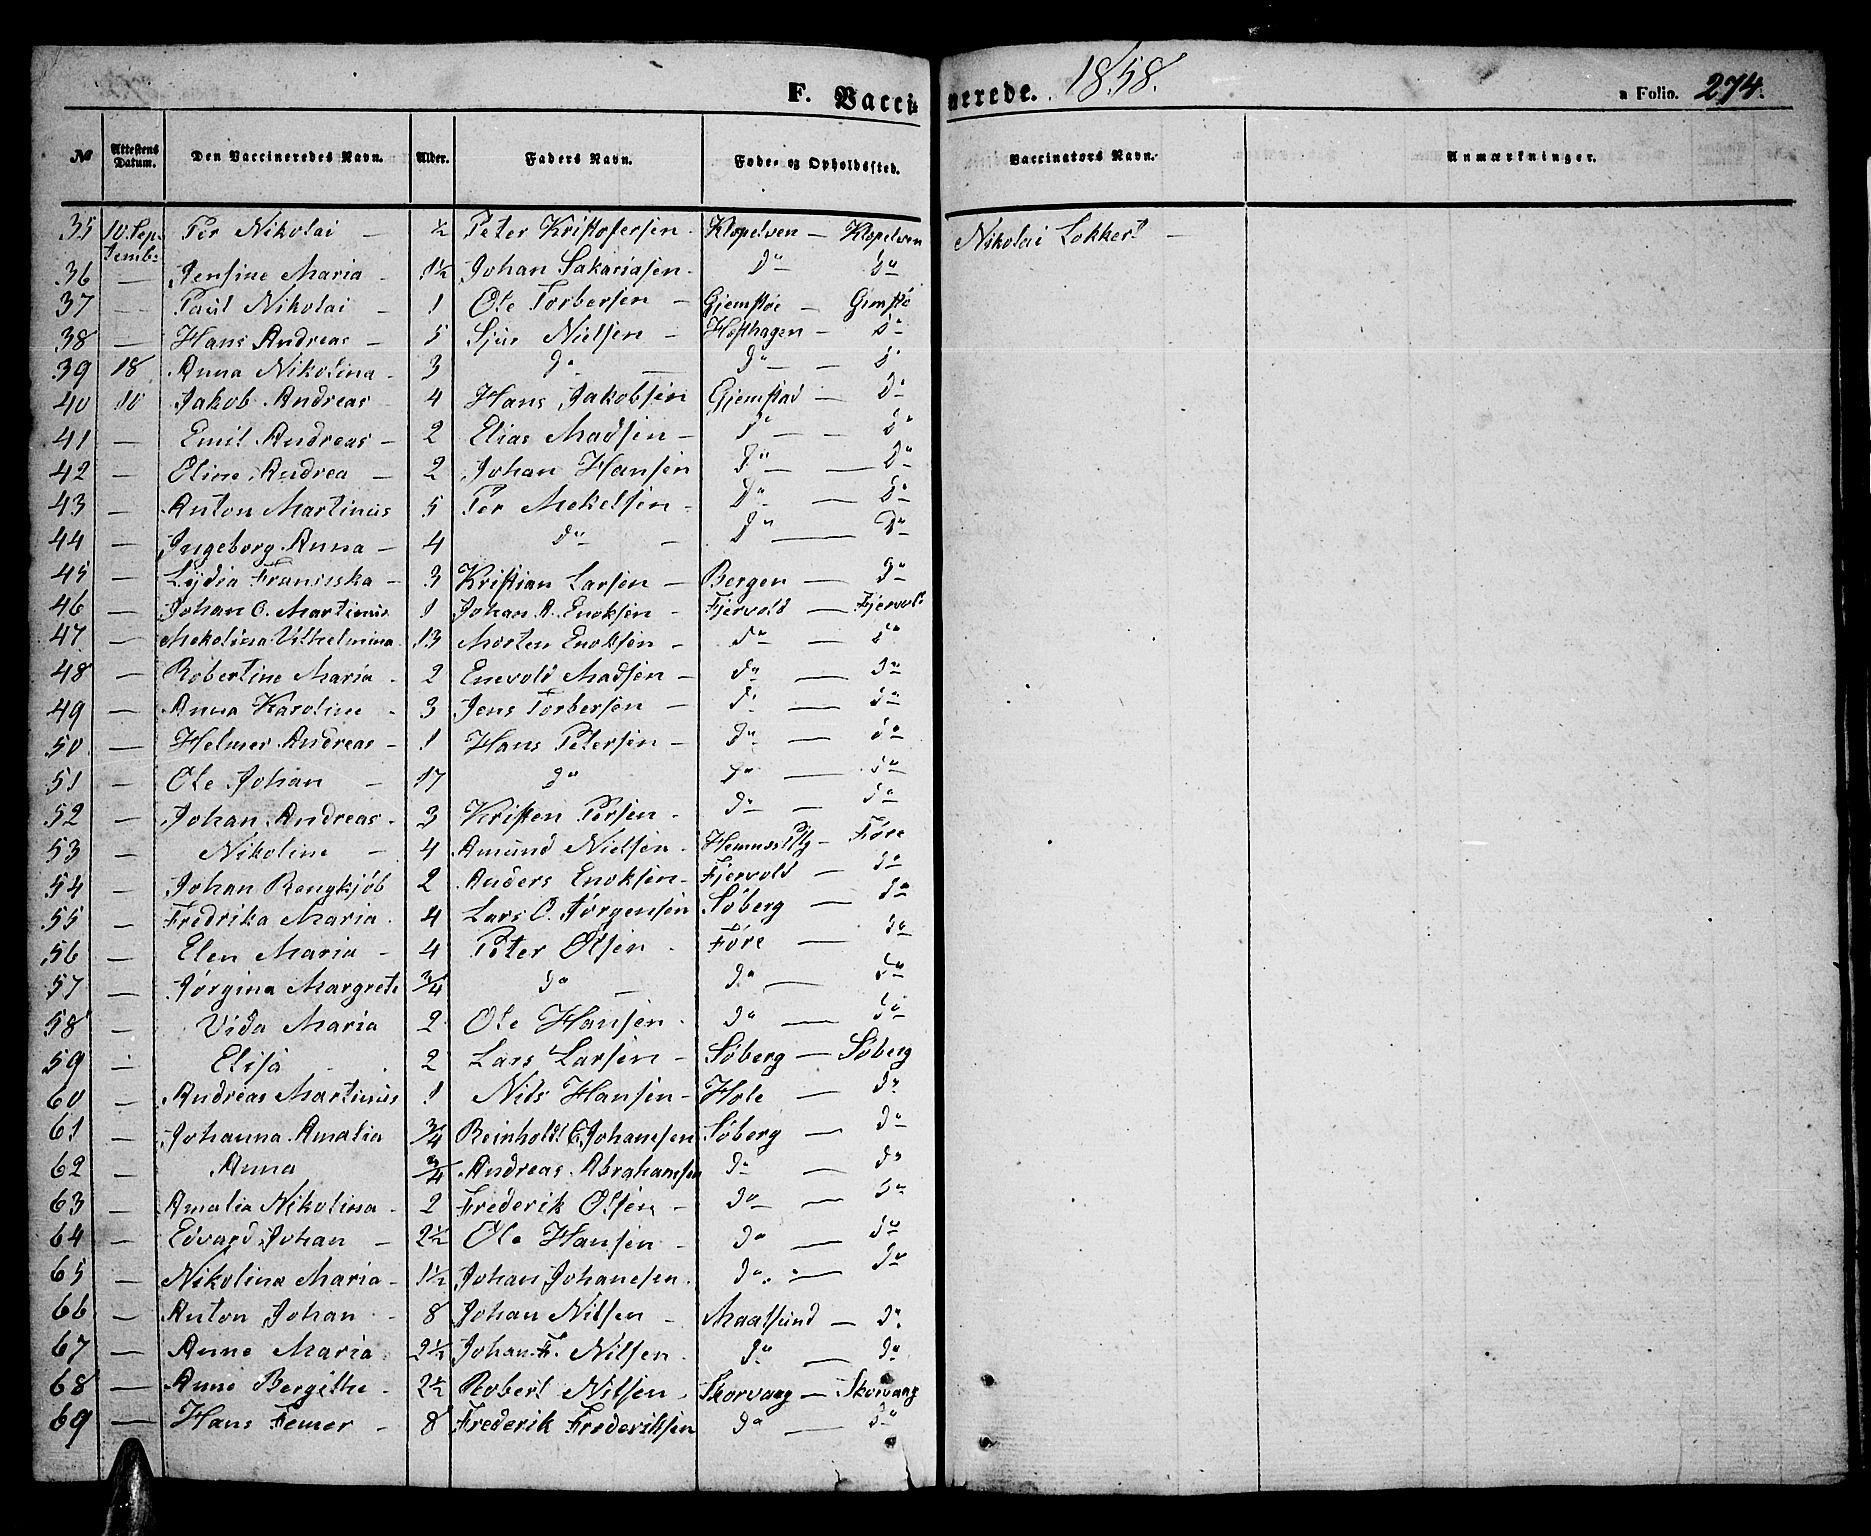 F. Vaccinerede. 1858. a Folio. 274.
№ | Attestens Datum. | Den Vaccineredes Navn. | Alder. | Faders Navn. | Føde- og Opholdssted. | Vaccinators Navn. | Anmærkninger.
35 | 10. September | Per Nikolai — | ½ | Peter Kristofersen — | Klopelven — Klopelven | Nikolai Lokkert —
36 | — | Jensine Maria — | 1½ | Johan Sakariasen — | Do — Do
37 | — | Paul Nikolai — | 1 | Ole Torbersen — | Gjemstøe — Gimstø
38 | — | Hans Andreas — | 5 | Sjur Nielsen — | Hofthagen — Do
39 | 18 | Anna Nikolina — | 3 | Do — | Do — Do
40 | 10 | Jakob Andreas — | 4 | Hans Jakobsen | Gjemstad — Do
41 | — | Emil Andreas — | 2 | Elias Madsen — | Do — Do
42 | — | Eline Andrea — | 2 | Johan Hansen | Do — Do
43 | — | Anton Martinus | 5 | Per Mekelsen — | Do — Do
44 | — | Ingeborg Anna — | 4 | Do — | Do — Do
45 | — | Lydia Franciska — | 3 | Kristian Larsen — | Bergen — Do
46 | — | Johan C. Martinus | 1 | Johan A. Enoksen — | Fjervold — Fjervold
47 | — | Mekolina Vilhelmina | 13 | Morten Enoksen — | Do — Do
48 | — | Robertine Maria — | 2 | Enevold Madsen — | Do — Do
49 | — | Anna Karoline — | 3 | Jens Torbersen — | Do — Do
50 | — | Helmer Andreas — | 1 | Hans Petersen — | Do — Do
51 | — | Ole Johan — | 17 | Do | Do — Do
52 | — | Johan Andreas — | 3 | Kristen Persen — | Do — Do
53 | — | Nikoline — | 4 | Amund Nielsen — | — Føre
54 | — | Johan | 2 | Anders Enoksen — | Fjervold — Do
55 | — | Fredrika Maria — | 4 | Lars O. Jørgensen | Søberg — Do
56 | — | Elen Maria — | 4 | Peter Olsen — | Føre — Do
57 | — | Jørgina Margrete | 3/4 | Do — | Do — Do
58 | — | Vida Maria | 2 | Ole Hansen — | Do — Do
59 | — | Elisa | 2 | Lars Larsen — | Søberg — Søberg
60 | — | Andreas Martinus | 1 | Nils Hansen — | Hole — Do
61 | — | Johanna Amalia | 3/4 | Reinholdt C. Johansen | Søberg — Do
62 | — | Anna | 3/4 | Andreas Abrahamsen | Do — Do
63 | — | Amalia Nikolina — | 2 | Frederik Olsen — | Do — Do
64 | — | Edvard Johan — | 2½ | Ole Hansen — | Do — Do
65 | — | Nikolina Maria — | 1½ | Johan Johanesen — | Do — Do
66 | — | Anton Johan — | 8 | Johan Nilsen — | Maalsund — Do
67 | — | Anne Maria | 2½ | Johan F. Nilsen — | Do — Do
68 | — | Anne Bergithe — | 2½ | Robert Nilsen — | Skorvaag — Skorvaag
69 | — | Hans Femer — | 8 | Frederik Frederiksen | Do — Do